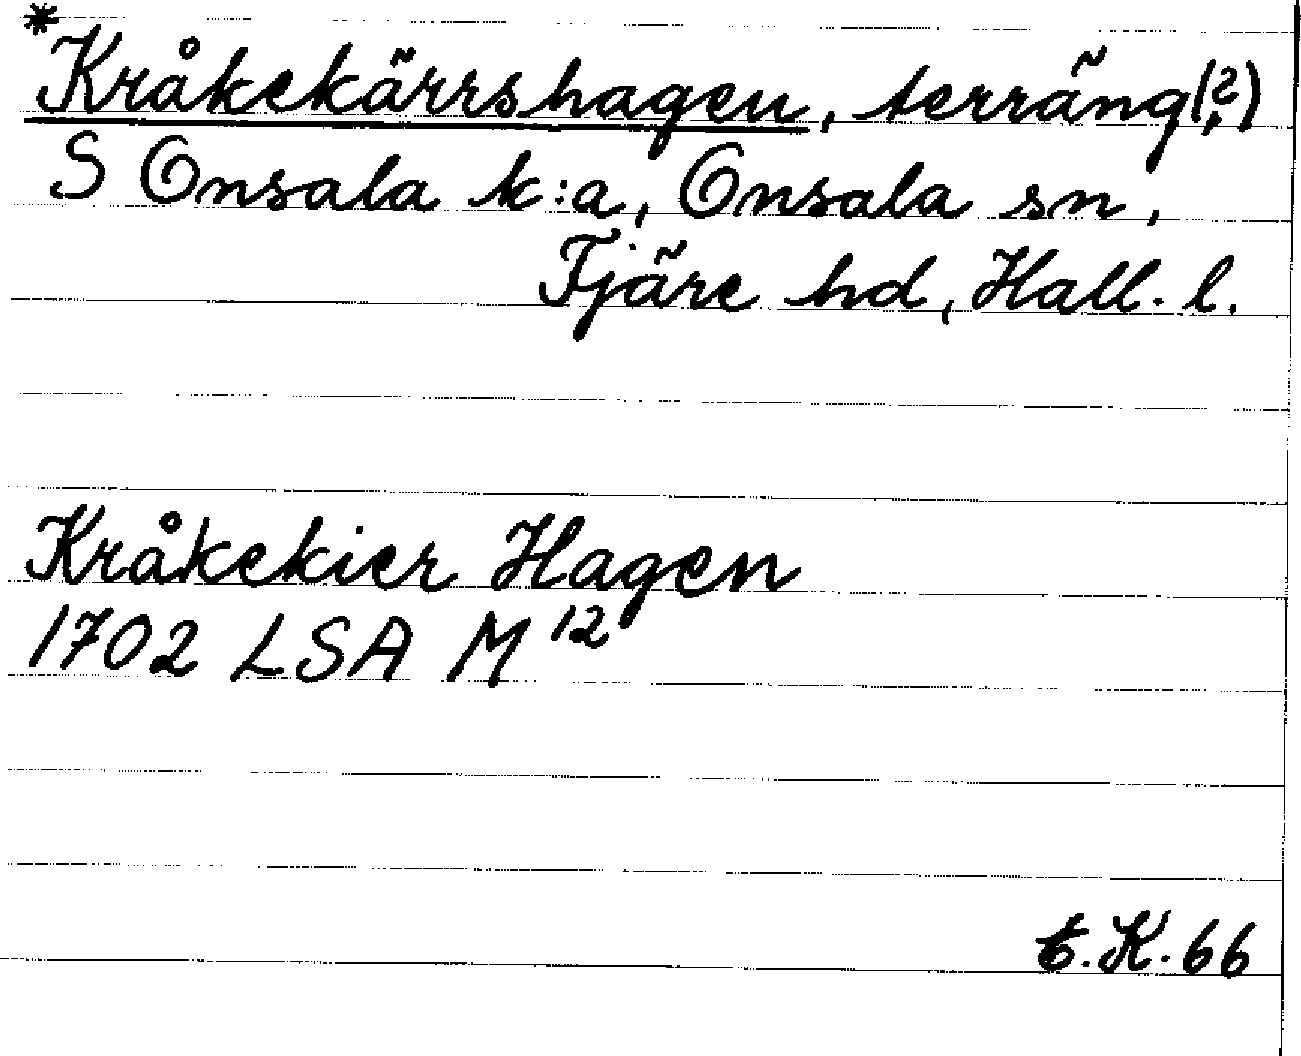 *Kråkekärrshagen, terräng(?)
S Onsala k:a, Onsala sn,
Fjäre hd, Hall. l.
Kråkekier Hagen
1702 LSA M 12
K. 66